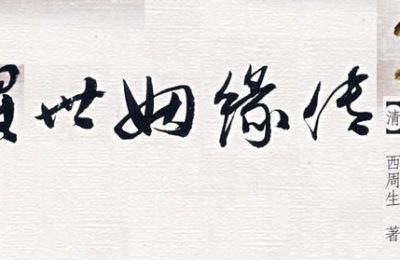 世姻缘传
清 西周生 著